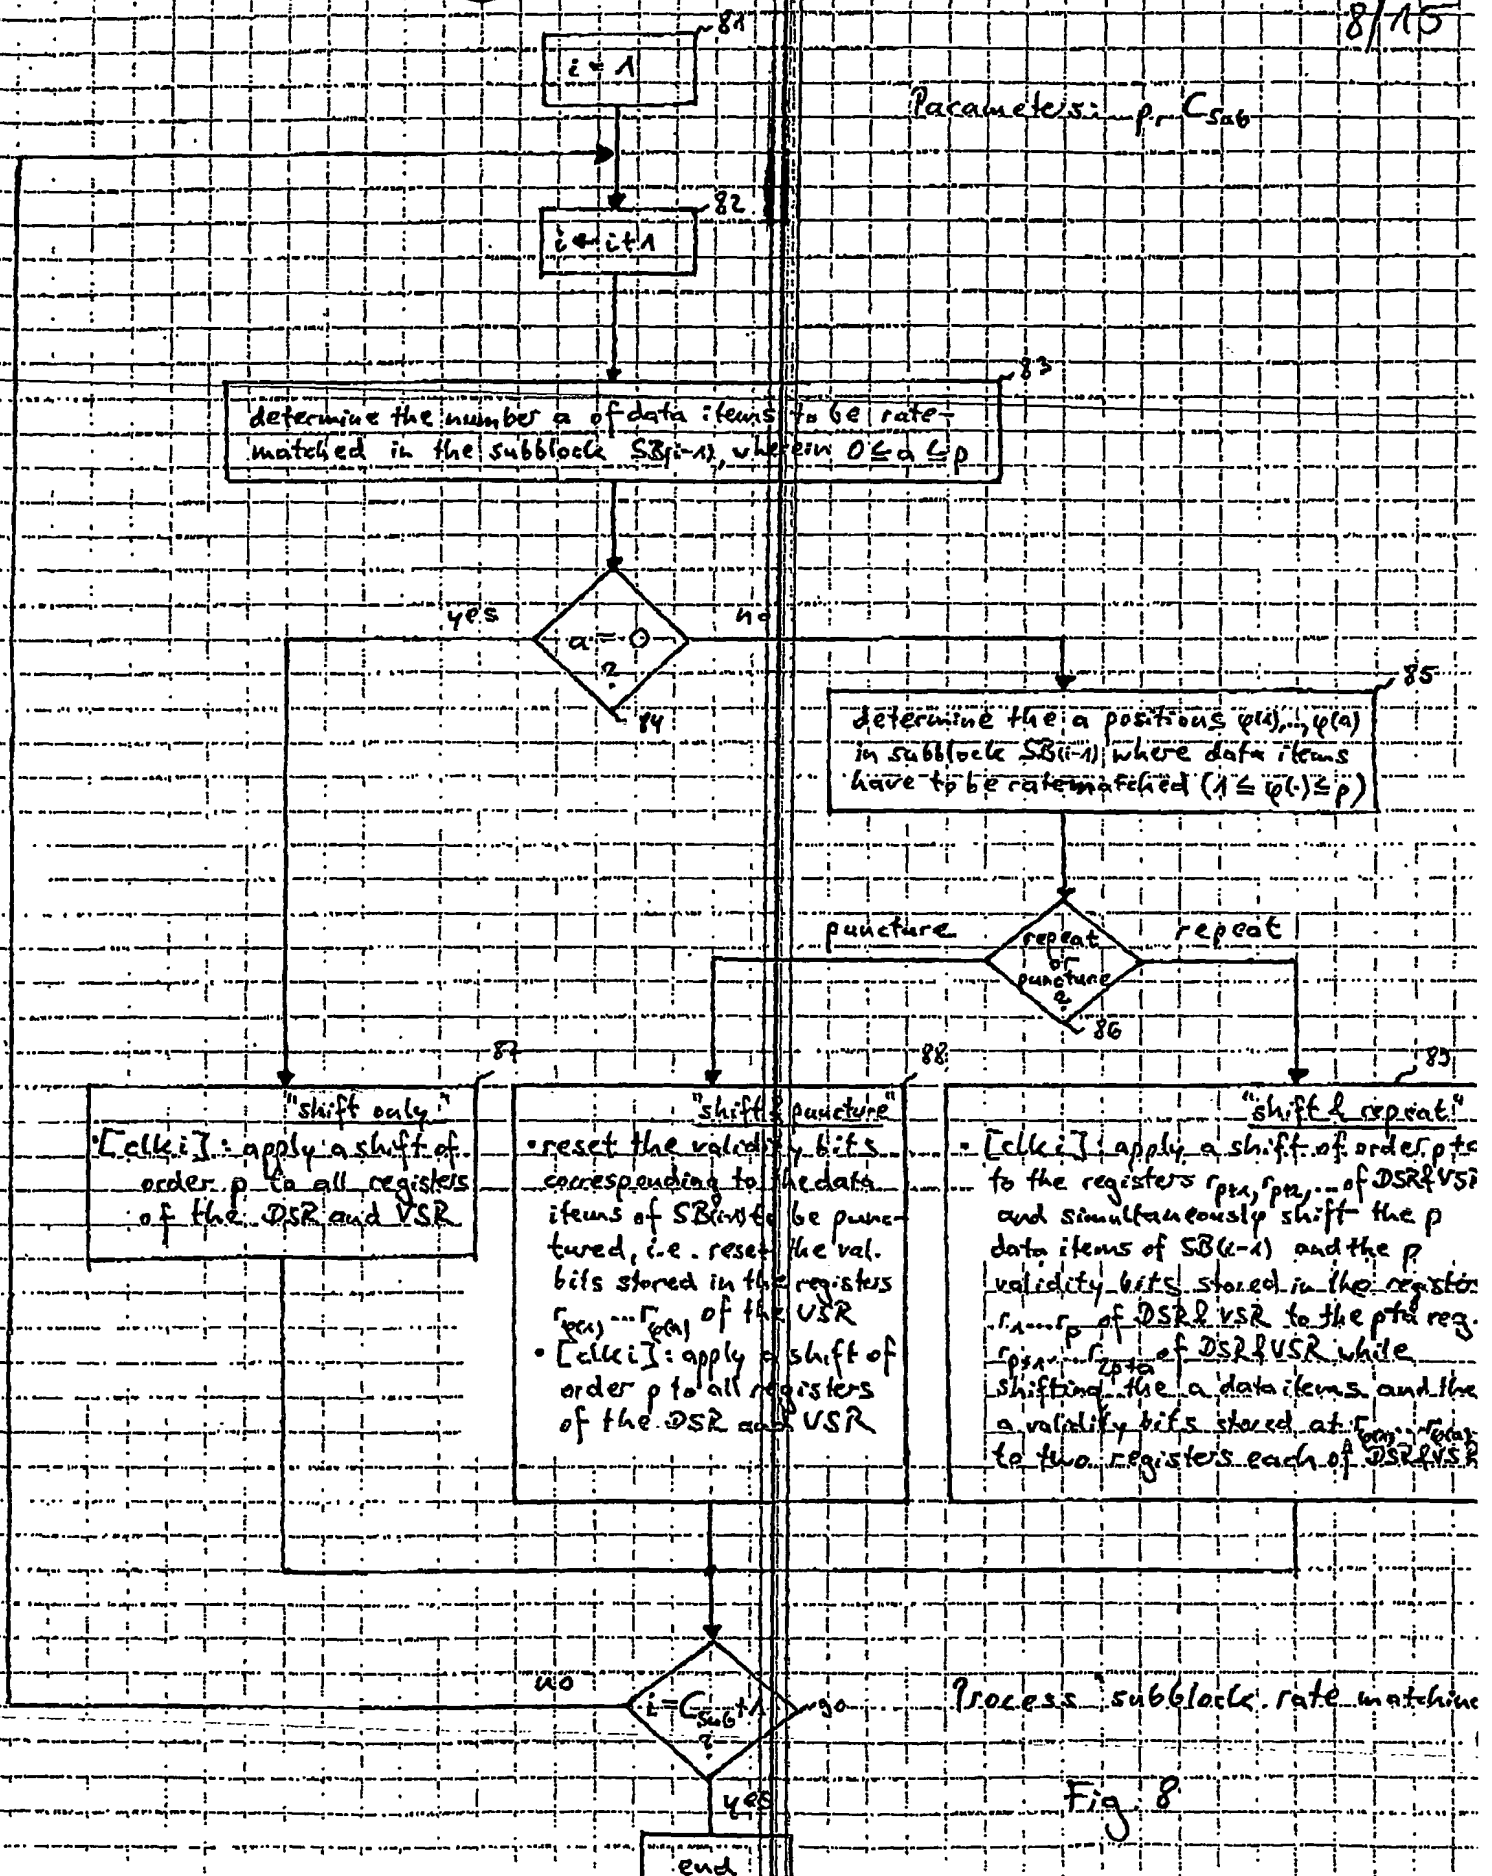 8/15
81
i = 1
Parameters: p, C_sub
82
i ← i+1
83
determine the number a of data items to be rate-
matched in the subblock SB(i-1), wherein 0 ≤ a ≤ p
yes
no
a = 0
?
84
85
determine the a positions φ(1),..,φ(a)
in subblock SB(i-1) where data items
have to be ratematched (1 ≤ φ(.) ≤ p)
puncture
repeat
repeat
or
puncture
?
86
87
"shift only"
• [clk i]: apply a shift of
order p to all registers
of the DSR and VSR
88
"shift & puncture"
• reset the validity bits
corresponding to the data
items of SB(i-1) to be punc-
tured, i.e. reset the val.
bits stored in the registers
r_φ(1)...r_φ(a) of the VSR
• [clk i]: apply a shift of
order p to all registers
of the DSR and VSR
89
"shift & repeat"
• [clk i]: apply a shift of order p+a
to the registers r_p+1, r_p+2, ... of DSR&VSR
and simultaneously shift the p
data items of SB(i-1) and the p
validity bits stored in the register
r_1...r_p of DSR & VSR to the p+a reg.
r_p+1...r_2p+a of DSR&VSR while
shifting the a data items and the
a validity bits stored at r_φ(1)...r_φ(a)
to two registers each of DSR&VSR
no
i = C_sub + 1
?
90
yes
end
Process "subblock rate matching
Fig. 8